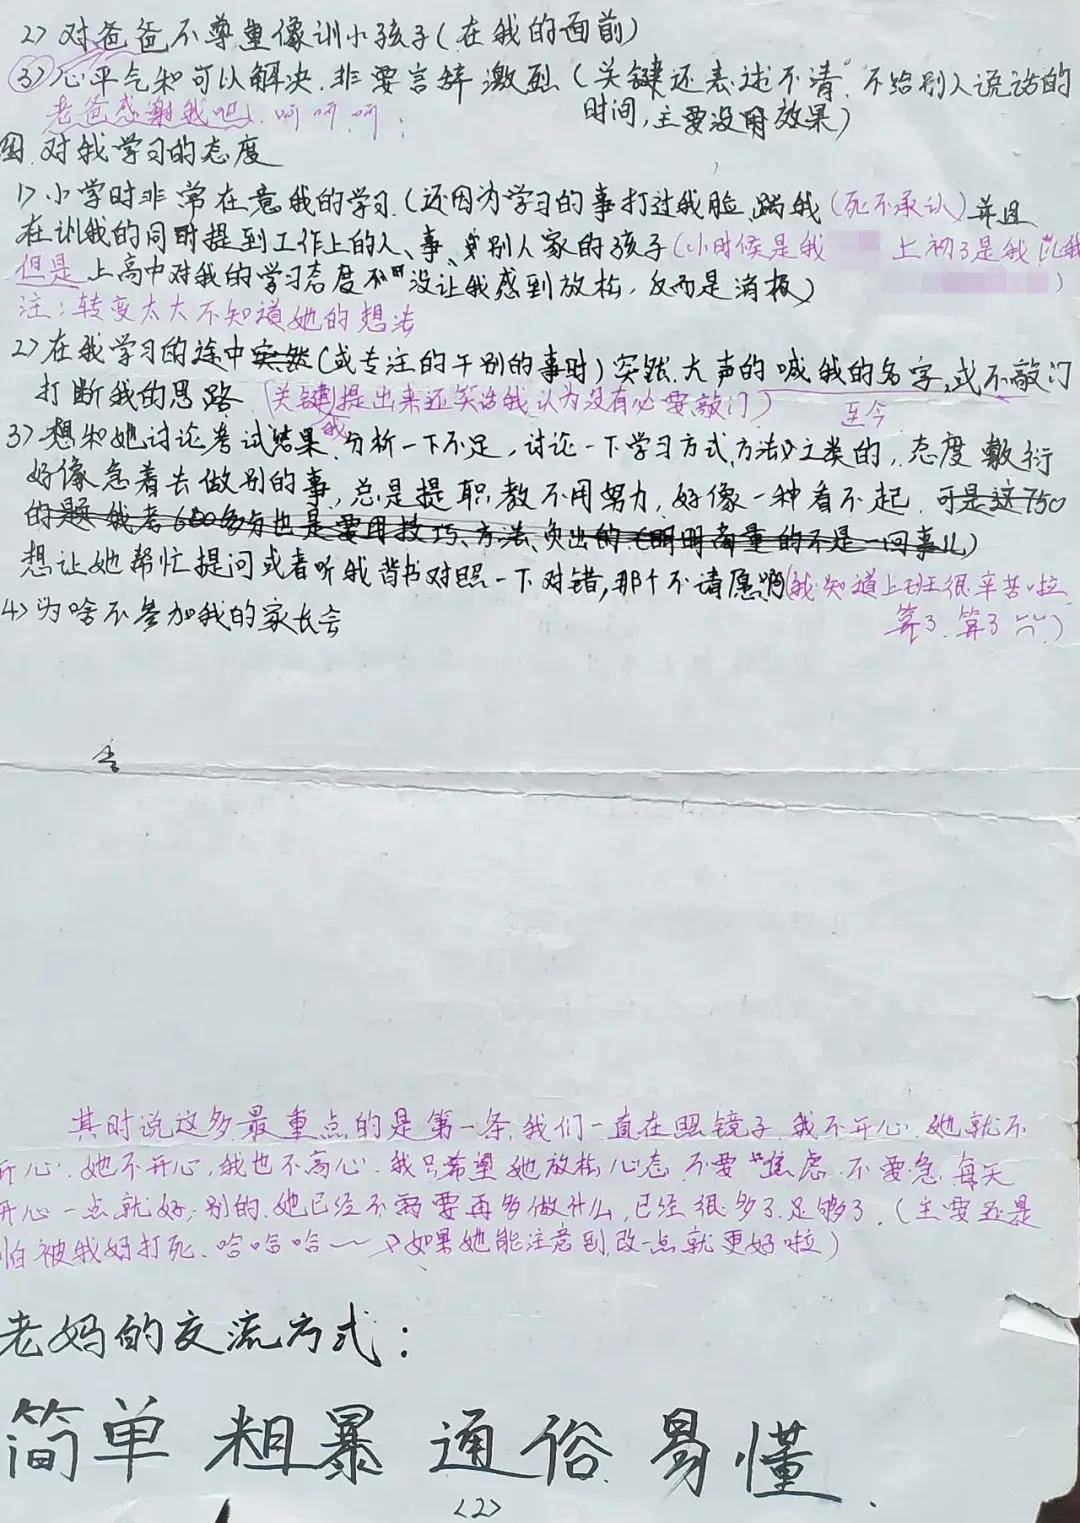 2> 对爸爸不尊重像训小孩子(在我的面前)
③心平气和可以解决.非要言辞激烈(关键还表述不清.不给别人说话的
老爸感谢我吧!呵呵呵;
时间,主要没用效果)
四.对我学习的态度
1> 小学时非常在意我的学习.(还因为学习的事打过我脸,踹我(死不承认)并且
在训我的同时提到工作上的人、事、别人家的孩子(小时候是我 上初了是我
但是上高中对我的学习态度 没让我感到放松,反而是消极)
注:转变太大不知道她的想法
2>在我学习的途中突然(或专注的干别的事时)突然.大声的喊我的名字,或不敲门
打断我的思路.(关键我提出来还笑话我认为没有必要敲门)
至今
3>想和她讨论考试结果.分析一下不足,讨论一下学习方式,方法之类的,态度敷衍
好像急着去做别的事,总是提职教不用努力,好像一种看不起.可是这750
的题我考600多分也是要用技巧、方法、 出的(明明 的不是一回事儿)
想让她帮忙提问或者听我背书对照一下对错,那个不请愿啊(我知道上班很辛苦啦
算了.算了)
4>为啥不参加我的家长会
其时说这多最重点的是第一条,我们一直在照镜子.我不开心.她就不
开心.她不开心,我也不高心.我只希望她放松心态.不要"焦虑.不要急.每天
开心一点就好;别的.她已经不需要再多做什么,已经很多了.足够了.(主要还是
怕被我妈打死.哈哈哈~~>如果她能注意到,改一点就更好啦)
老妈的交流方式:
简单 粗暴 通俗 易懂.
<2>